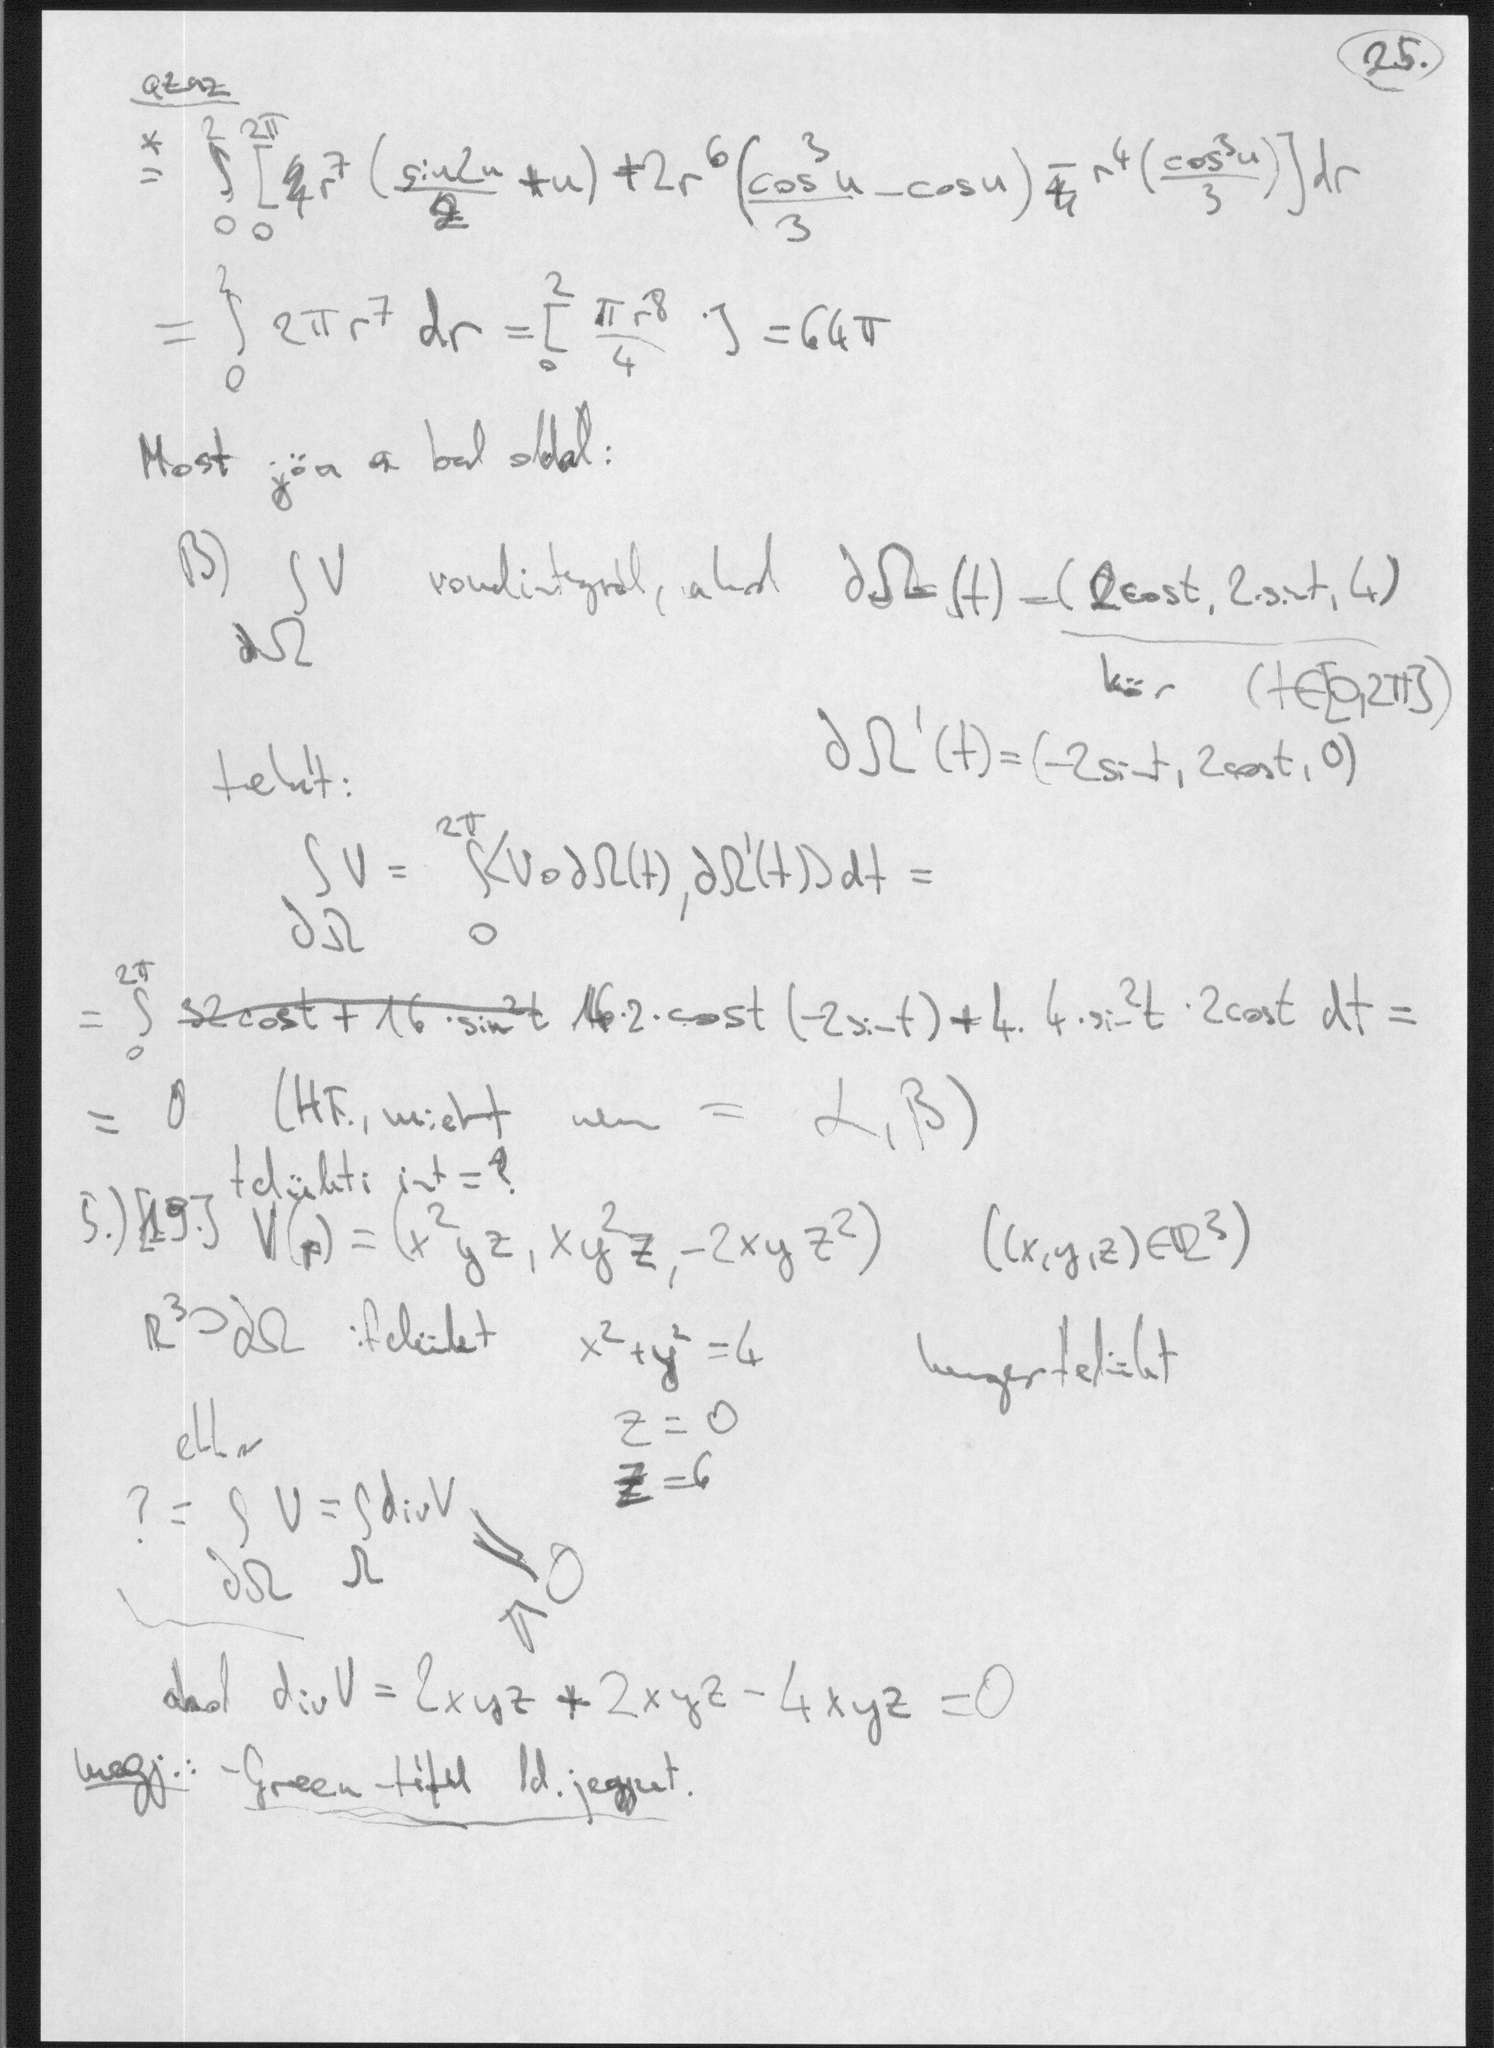 25.
azaz
* = ∫₀² [₀^{2π} r⁷ (sin2u/2 + u) + 2r⁶ (cos³u/3 - cosu) - r⁴ (cos³u/3)] dr
= ∫₀² 2πr⁷ dr = [₀² πr⁸/4 ] = 64π
Most jön a bal oldal:
B) ∫_{∂Ω} V vonalintegrál, ahol ∂Ω=(t) = (2cost, 2·sint, 4)
kör (t∈[0,2π])
∂Ω'(t) = (-2sint, 2cost, 0)
tehát:
∫_{∂Ω} V = ∫₀^{2π} <V∘∂Ω(t), ∂Ω'(t)> dt =
= ∫₀^{2π} 32cost + 16·sin²t 16·2·cost (-2sint) + 4·4·sin²t·2cost dt =
= 0 (HF., miért nem = α, β)
felületi int = ?
5.) [19.] V(r) = (x²yz, xy²z, -2xyz²) ((x,y,z)∈ℝ³)
ℝ³⊃∂Ω felület x²+y²=4 hengerfelület
z = 0
z = 6
ekkor
? = ∫_{∂Ω} V = ∫_Ω divV = 0
⇑
ahol divV = 2xyz + 2xyz - 4xyz = 0
megj.: - Green-tétel ld. jegyzet.